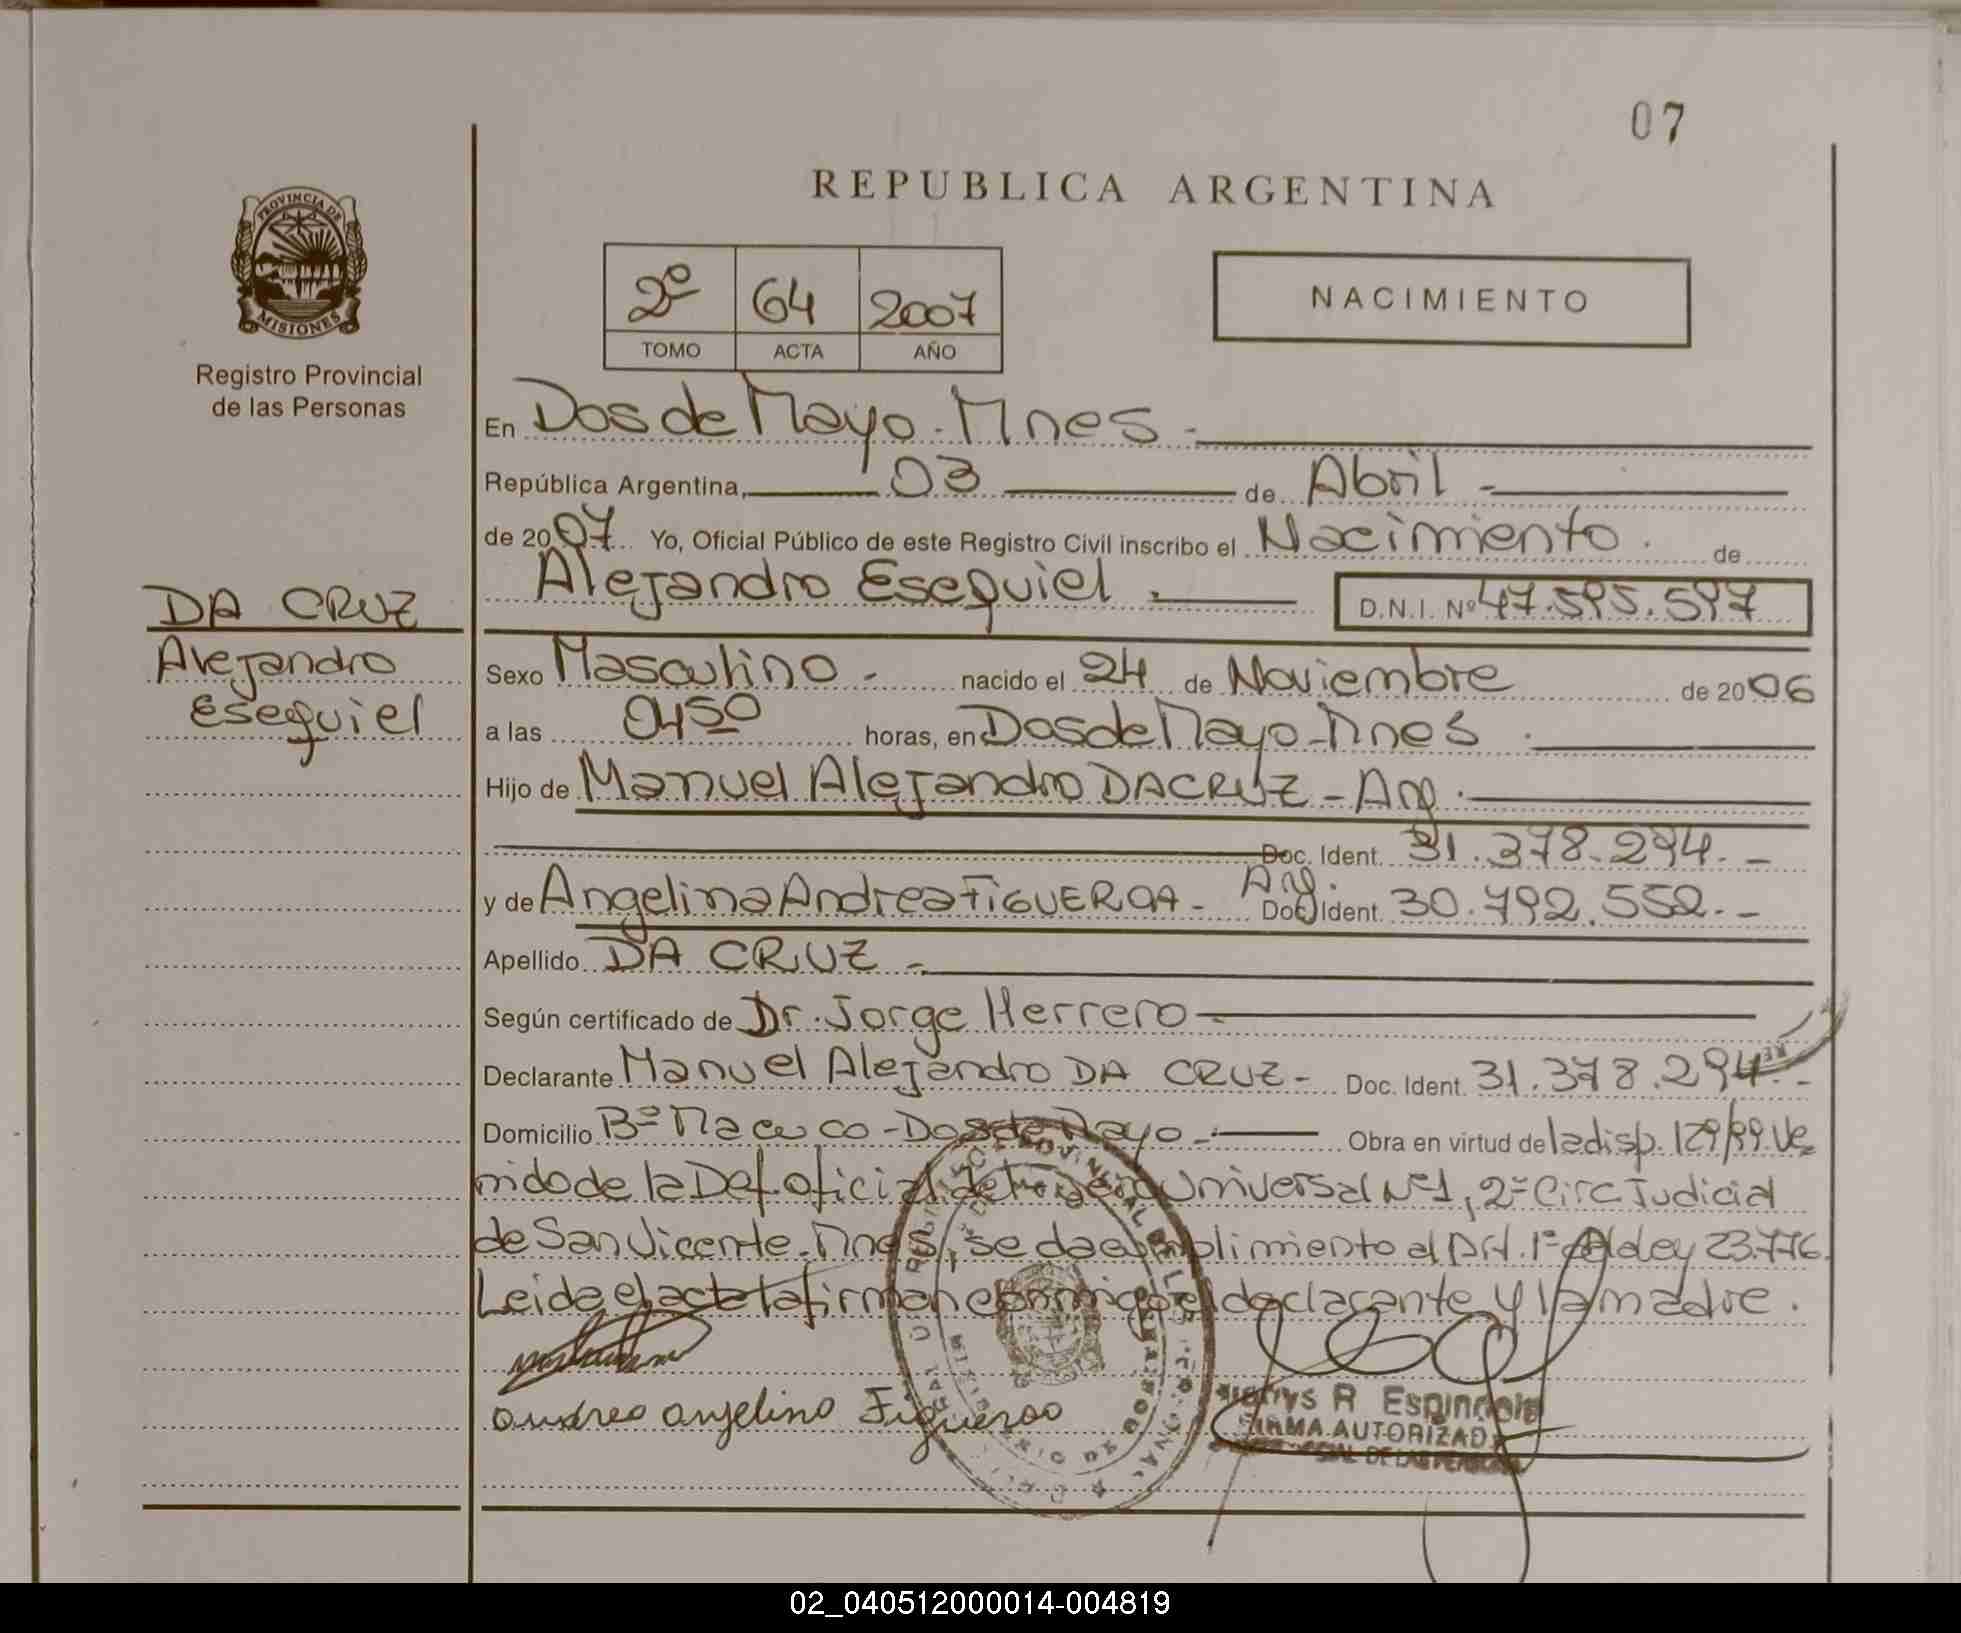 07
REPUBLICA ARGENTINA
PROVINCIA DE
MISIONES
Registro Provincial
de las Personas
2º 64 2007
TOMO ACTA AÑO
NACIMIENTO
En Dos de Mayo - Mnes -
República Argentina, 03 de Abril -
de 2007. Yo, Oficial Público de este Registro Civil inscribo el Nacimiento. de
Alejandro Esequiel . D.N.I. Nº 47.595.597
DA CRUZ
Alejandro
Esequiel
Sexo Masculino - nacido el 24 de Noviembre de 2006
a las 0450 horas, en Dos de Mayo - Mnes .
Hijo de Manuel Alejandro DA CRUZ - Arg .
Doc. Ident. 31.378.294. -
y de Angelina Andrea FIGUEROA - Arg. Doc. Ident. 30.792.552. -
Apellido DA CRUZ -
Según certificado de Dr. Jorge Herrero -
Declarante Manuel Alejandro DA CRUZ - Doc. Ident. 31.378.294 - -
Domicilio Bº - Dos de Mayo - Obra en virtud de la disp. 129/99. Ve
nido de la Def. oficial de Universal Nº1, 2º Circ Judicial
de San Vicente. Mnes, se da cumplimiento al Art. 1º de la ley 23.776.
Leida el acta la firman conmigo el declarante y la madre .
Andrea Angelina Figueroa
R Espindola
FIRMA AUTORIZADA
02_040512000014-004819